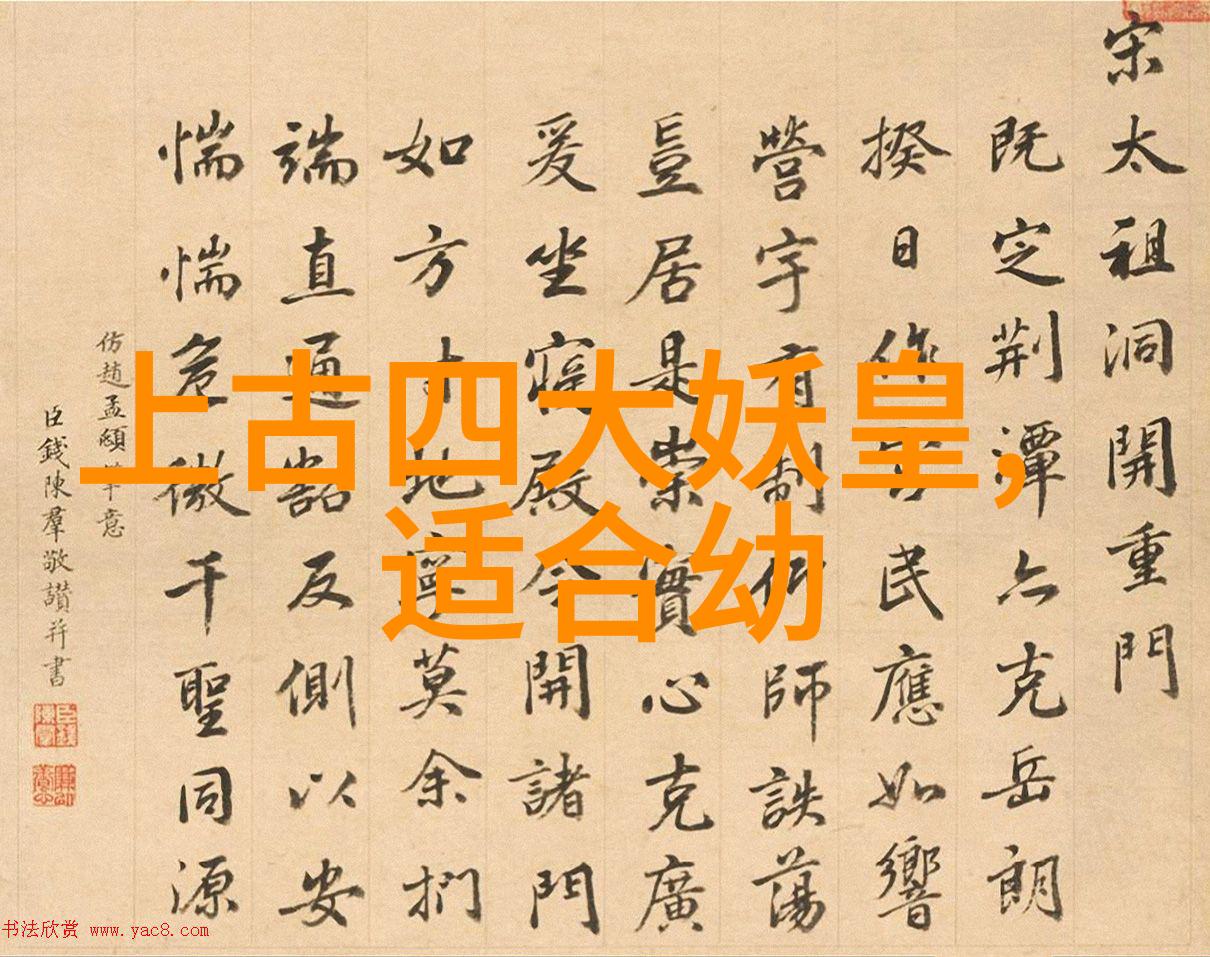 宋太祖洞開重門
既定荆潭亦克岳朗
揆日作民應如響
營宇有制師詄蕩
豈居是崇實心克廣
爰坐寢殿令開諸門
如方寸地寧莫余捫
端直通豁反側以安
惴惴危微千聖同源
仿趙孟頫筆意
臣錢陳羣敬讚并書
上古四大妖皇，
适合幼
书法欣赏 www.yac8.com